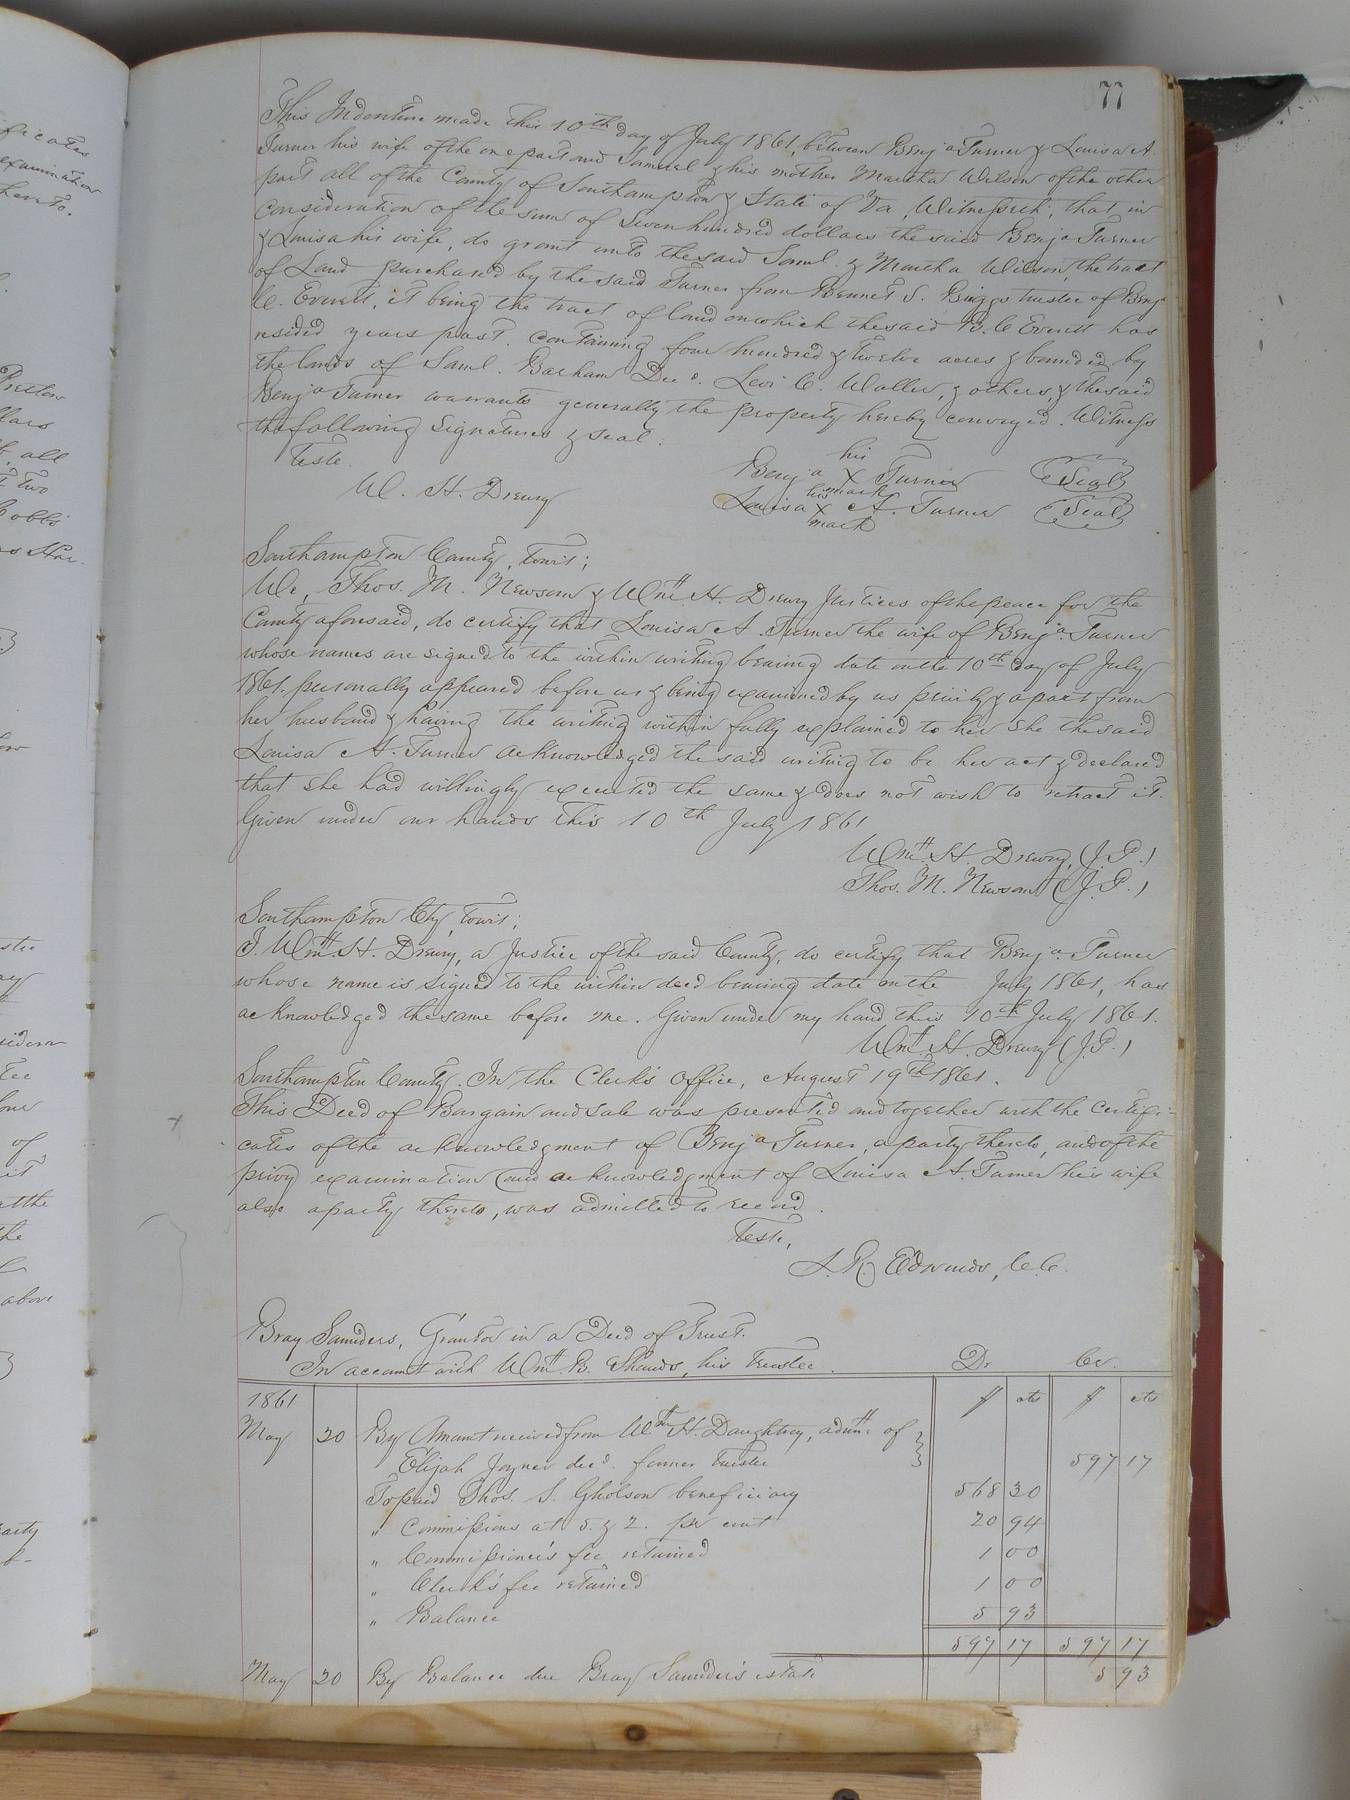 77
This Indenture made this 10th day of July 1861, between Benja Turner & Louisa A.
Turner his wife of the one part and Samuel & his mother Martha Wilson of the other
part all of the County of Southampton & State of Va, Witnesseth; that in
consideration of the sum of Seven hundred dollars the said Benja Turner
& Louisa his wife, do grant unto the said Saml. & Martha Wilson, the tract
of Land purchased by the said Turner from Bennet S. Briggs trustee of Benj
C. Everett, it being the tract of land on which the said B. C Everett has
resided years past. containing four hundred & twelve acres & bounded by
the lands of Saml. Barham Decd. Levi C. Waller, & others, & the said
Benja Turner warrants generally the property hereby conveyed. Witness
the following signatures & seal.
Teste. his
Benja X Turner (Seal)
W. H. Drewry mark
his
Louisa X A. Turner (Seal)
mark
Southampton County, towit;
We, Thos. M. Newsom & Wm H. Drewry Justices of the peace for the
County aforesaid, do certify that Louisa A. Turner the wife of Benja Turner
whose names are signed to the within writing bearing date on the 10th day of July
1861. personally appeared before us & being examined by us privily & apart from
her husband & having the writing within fully explained to her she the said
Louisa A. Turner acknowledged the said writing to be her act & declared
that she had willingly executed the same & does not wish to retract it.
Given under our hands this 10th July 1861
Wm. H. Drewry, (J.P.)
Thos. M. Newsom (J.P.)
Southampton Cty, towit;
I. Wm. H. Drewry, a Justice of the said County, do certify that Benja Turner
whose name is signed to the within deed bearing date on the July 1861, has
acknowledged the same before me. Given under my hand this 10th July 1861.
Wm. H. Drewry (J.P.)
Southampton County. In the Clerk's Office, August 19th 1861.
This Deed of Bargain and sale was presented and together with the certifi-
cates of the acknowledgment of Benja Turner, a party thereto, and of the
privy examination and acknowledgment of Louisa A. Turner his wife
also a party thereto, was admitted to record.
Teste,
L. R. Edwards, C.C.
Bray Saunders, Grantor in a Deed of Trust.
In account with Wm. B. Shands, his trustee. Dr Cr.
1861 $ cts $ cts
May 20 By Amount received from Wm H. Daughtrey, admr. of
Elijah Joyner decd. former trustee 597 17
To paid Thos. S. Gholson beneficiary 568 30
" Commissions at 5. & 2. pr cent 20 94
" Commissioner's fee retained 1 00
" Clerk's fee retained 1 00
" Balance 5 93
597 17 597 17
May 20 By Balance due Bray Saunders's estate 5 93